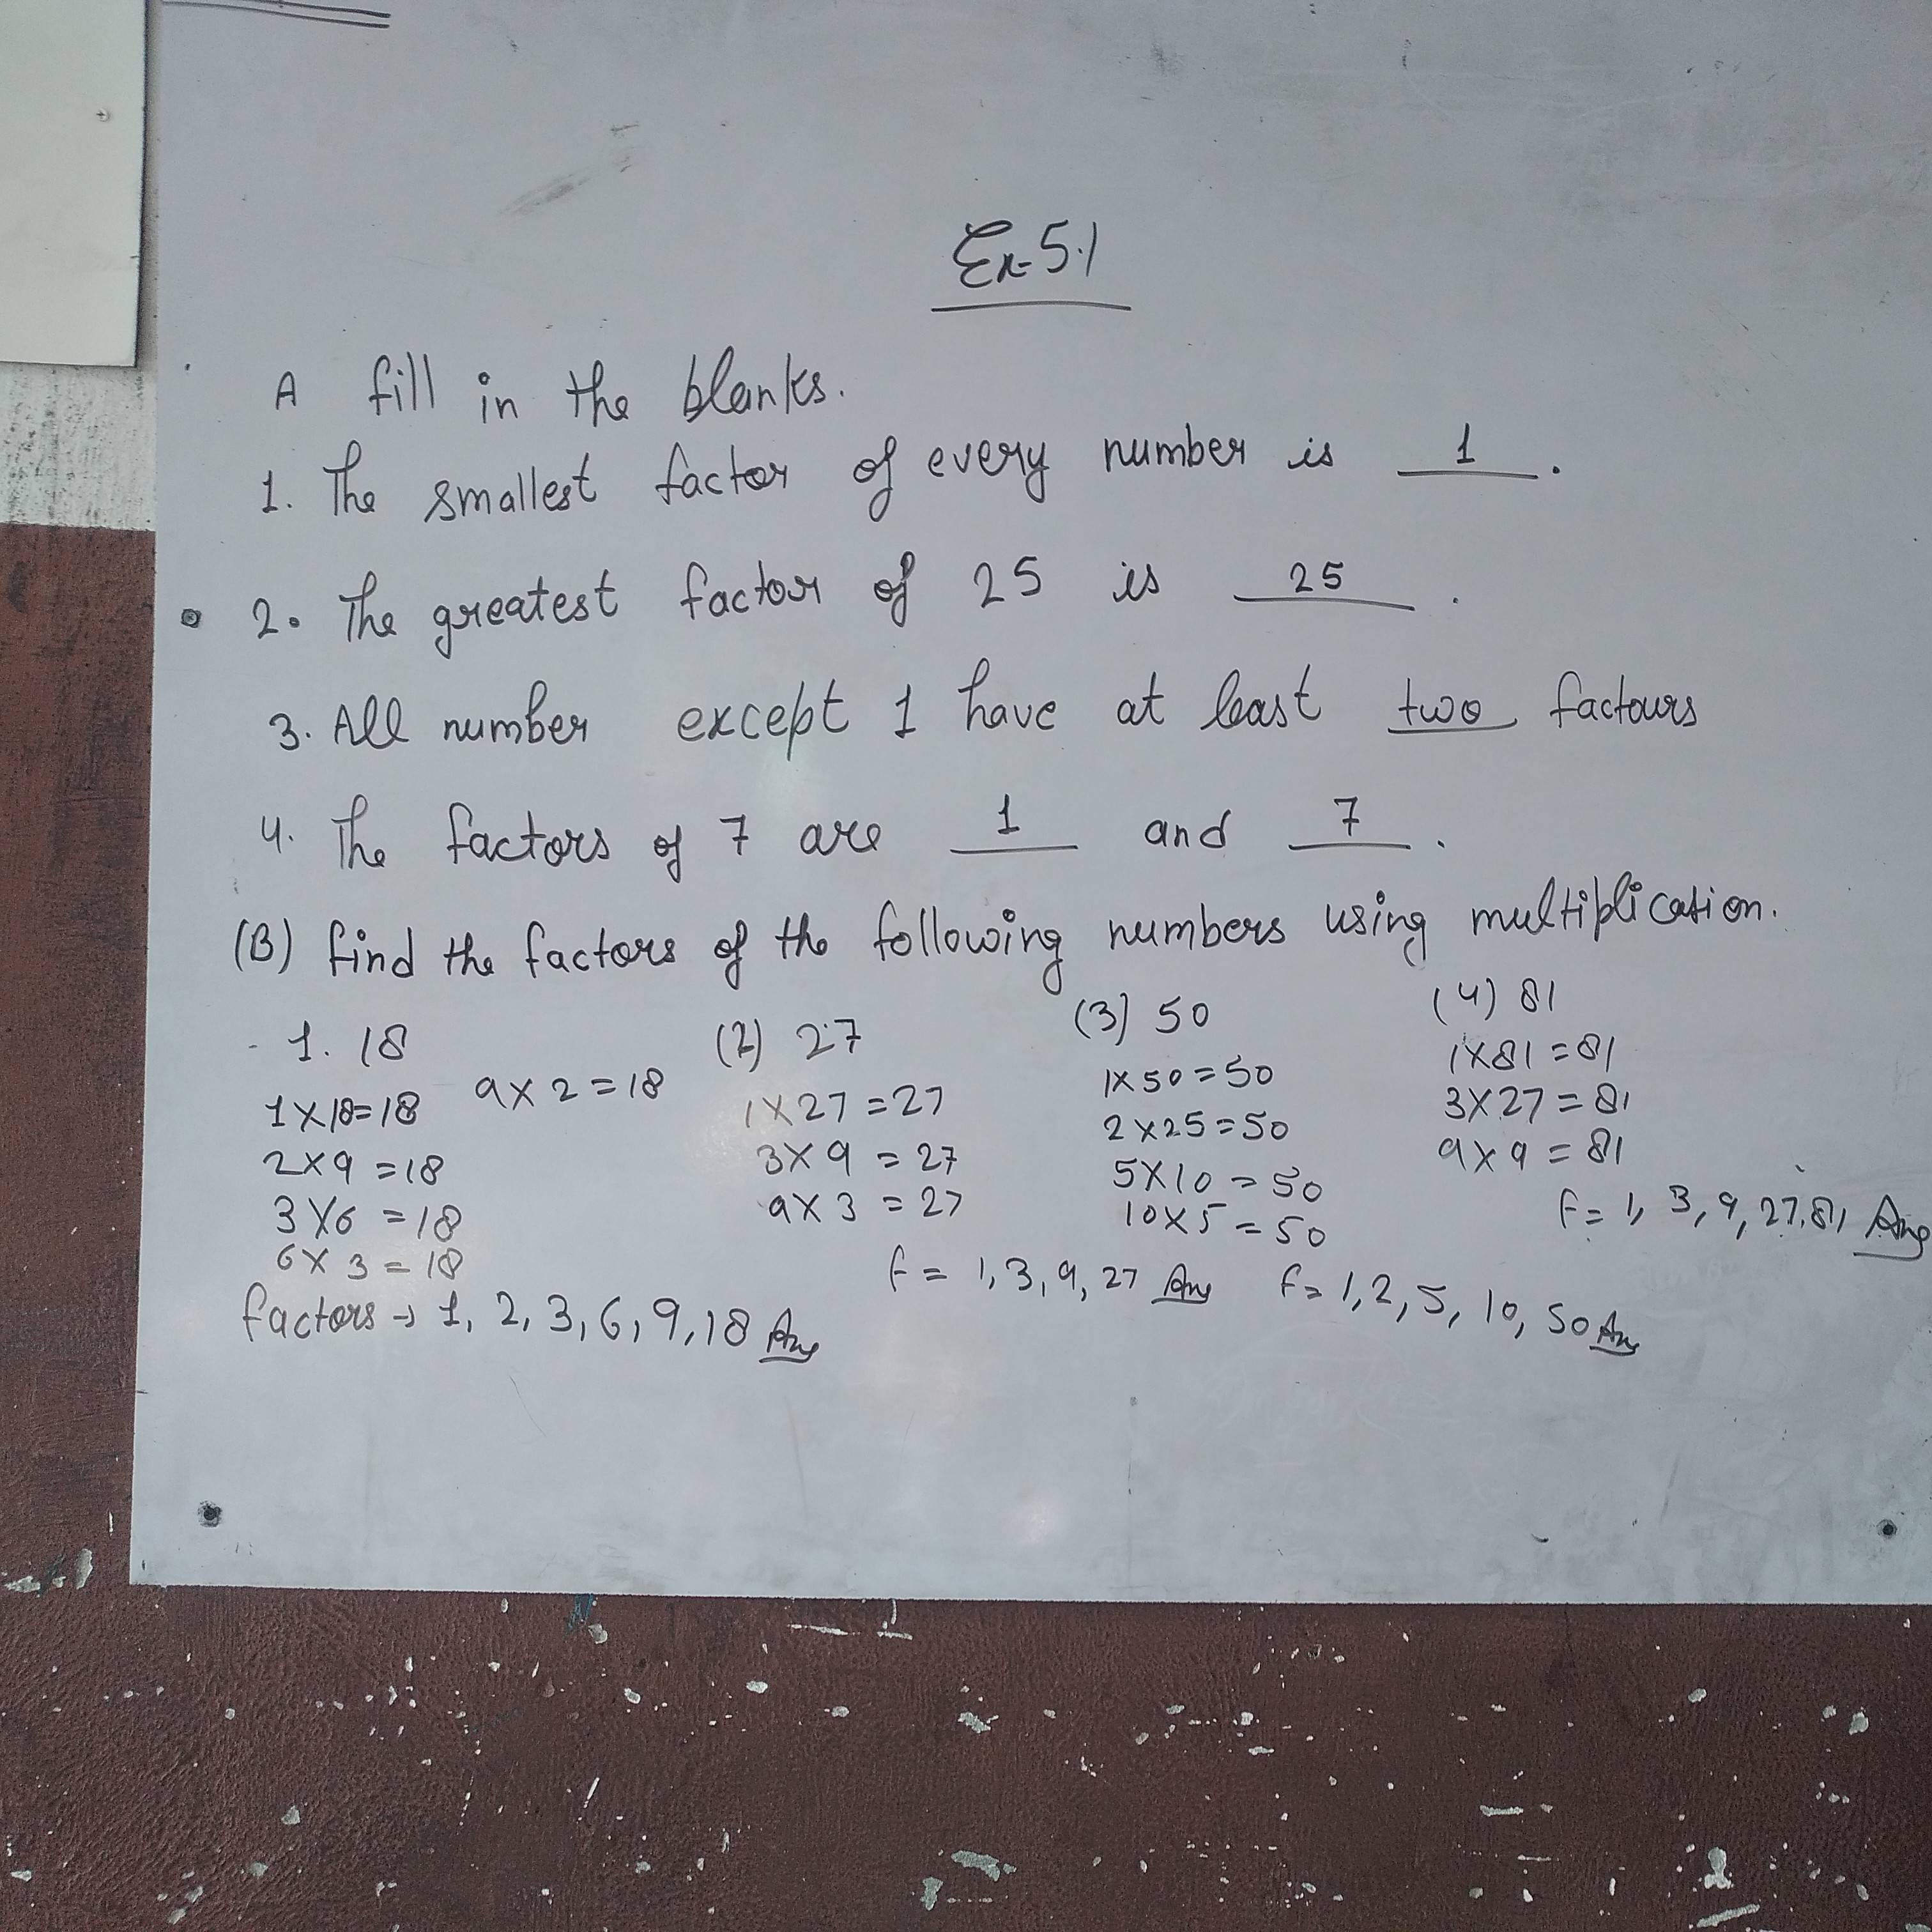 Ex-5.1
A fill in the blanks.
1. The smallest factor of every number is 1.
2. The greatest factor of 25 is 25.
3. All number except 1 have at least two factours
4. The factors of 7 are 1 and 7.
(B) find the factors of the following numbers using multiplication.
1. 18
1X18=18 9X2=18
2X9=18
3X6=18
6X3=18
factors → 1, 2, 3, 6, 9, 18 Ans
(2) 27
1X27=27
3X9=27
9X3=27
f= 1, 3, 9, 27 Ans
(3) 50
1X50=50
2X25=50
5X10=50
10X5=50
f= 1, 2, 5, 10, 50 Ans
(4) 81
1X81=81
3X27=81
9X9=81
f= 1, 3, 9, 27, 81, Ans